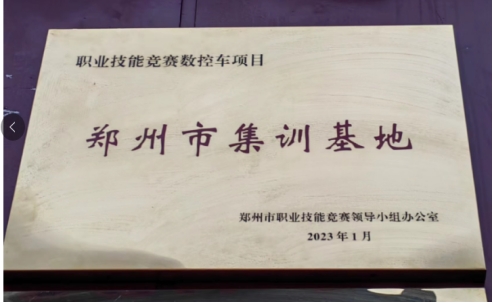 职业技能竞赛数控车项目
郑州市集训基地
郑州市职业技能竞赛领导小组办公室
2023年1月